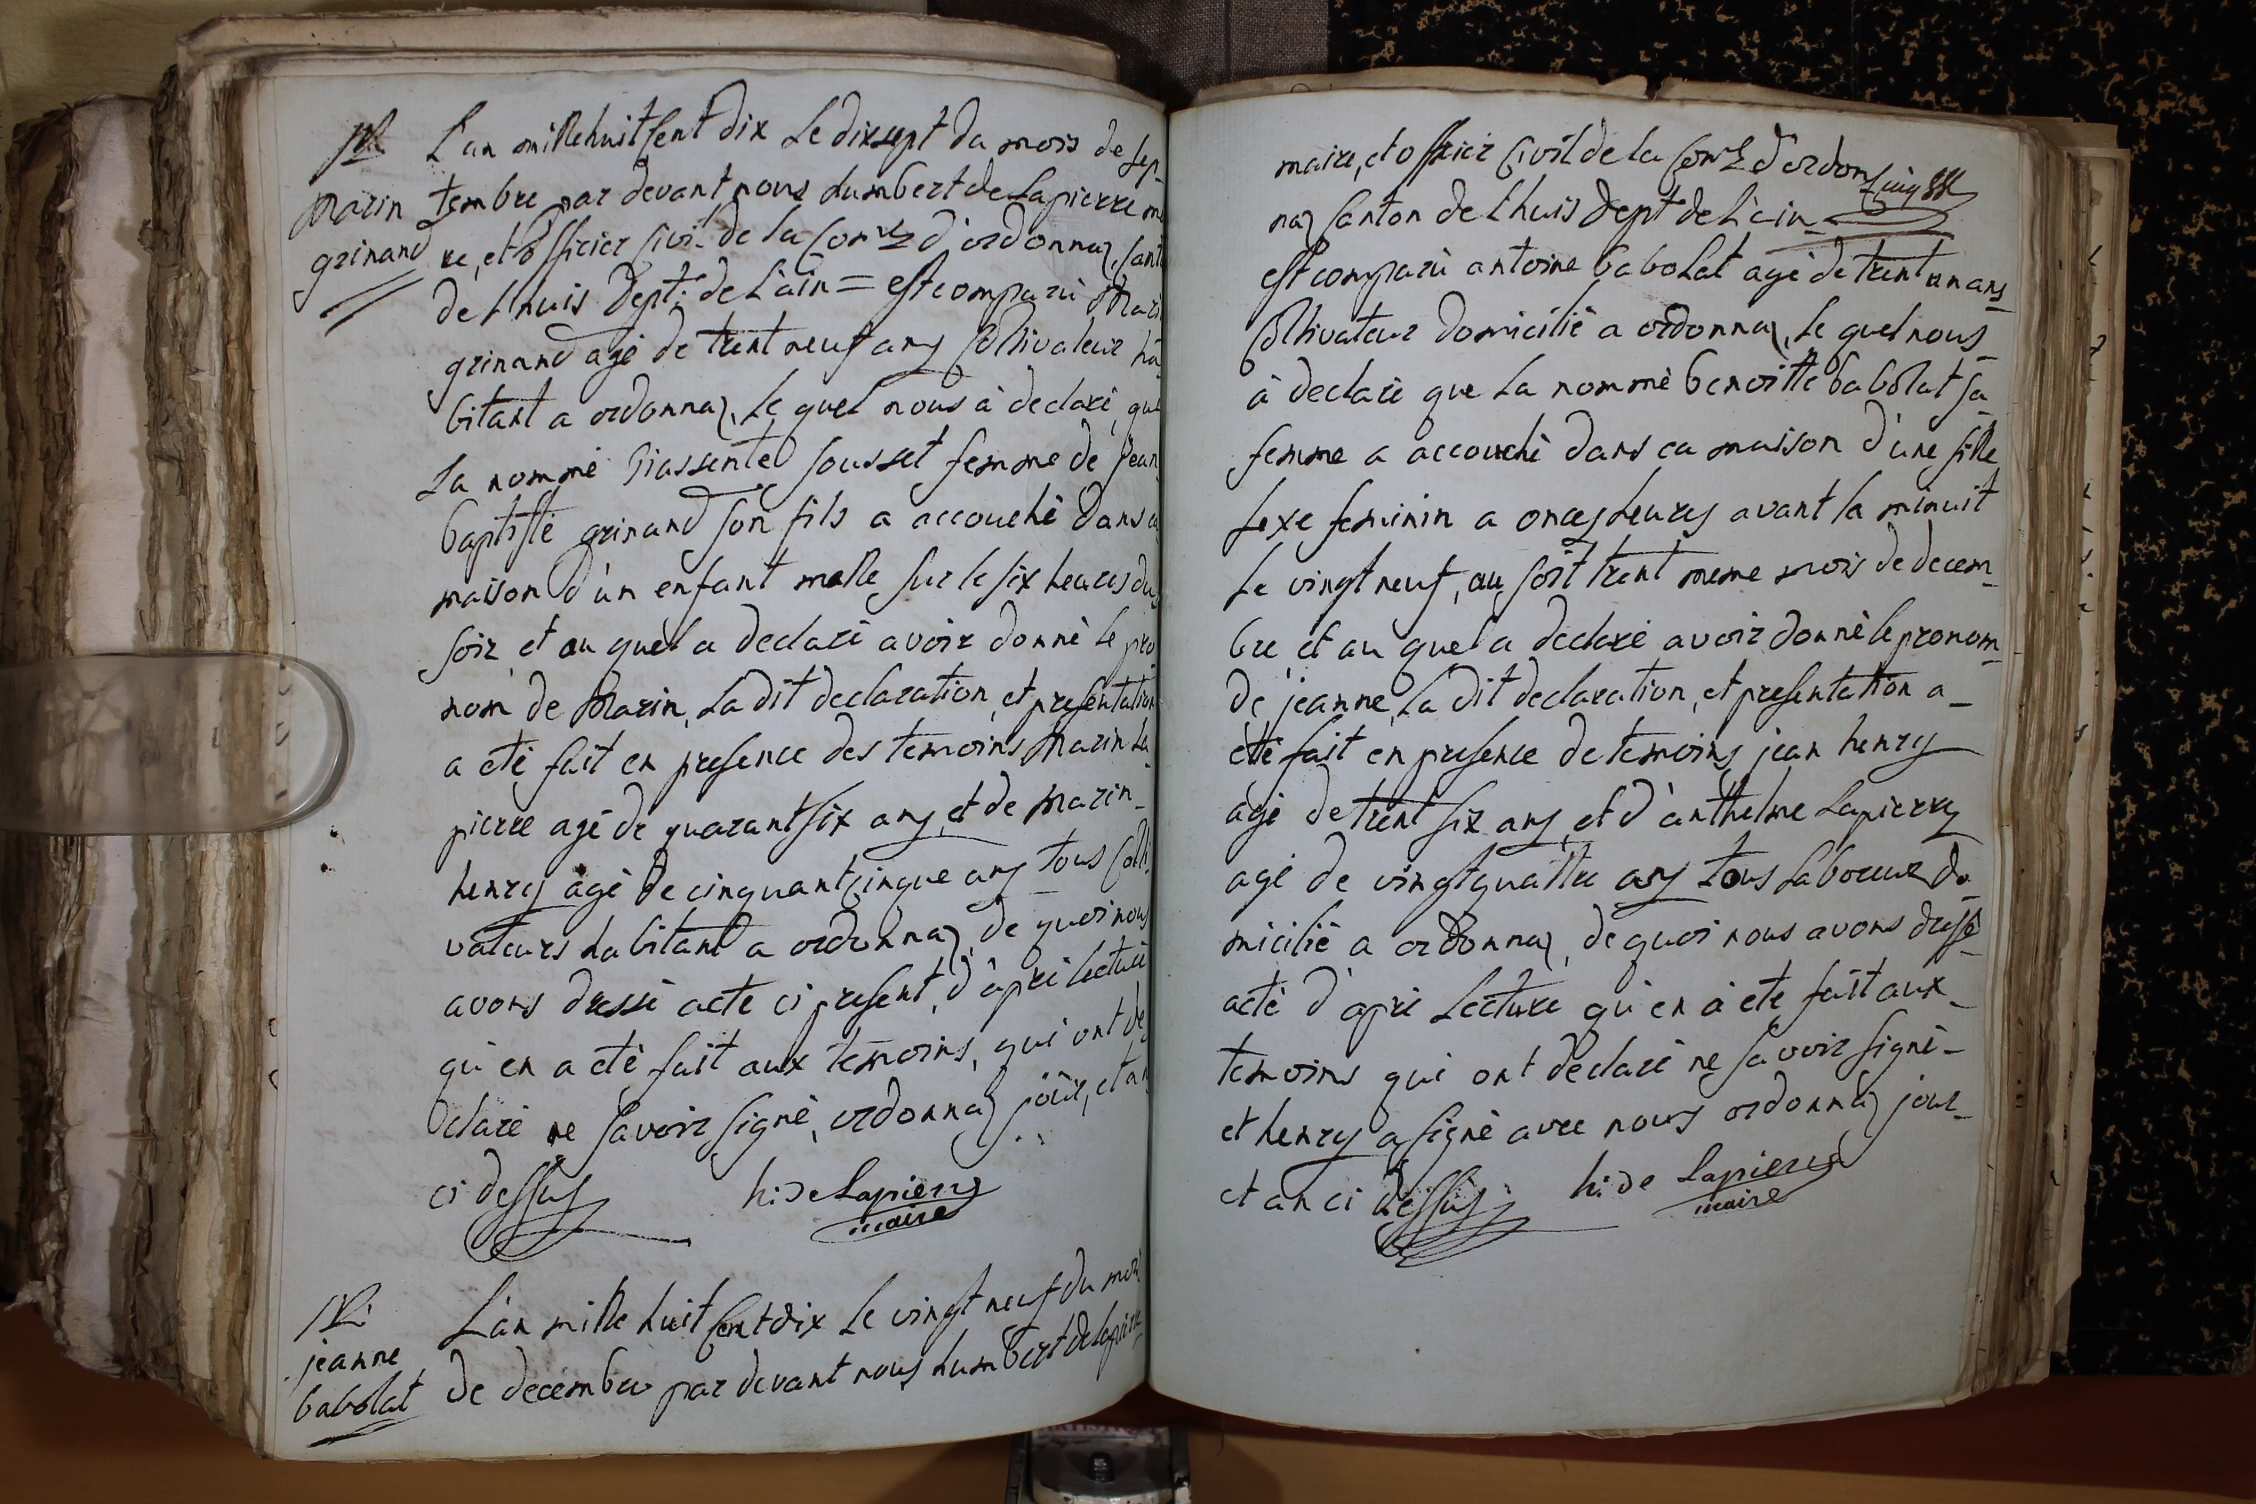 Marin
grinand
L'an mille huit Cent dix Le dixsept du mois de Sep-
tembre par devant nous humbert de Lapierre
re, et officier Civil de la Com.e d'ordonnaz, Cant
de Lhuis Dept. de L'ain = est comparü Mari
grinand agé de trent neuf ans Coltivateur ha-
bitant a ordonnaz, Le quel nous à declaré, que
La nommé jousset femme de jean
baptiste grinand son fils a accouché dans
maison d'un enfant malle sur le six heures du
soir, et au quel a declaré avoir donné le pro-
nom de Marin, La dit declaration, et presentation
a eté fait en presence des temoins Marin La
pierre agé de quarant six ans, et de Marin-
henry agé de cinquant cinque ans tous Colti-
vateurs habitant a ordonnaz, de quoi nous
avons dressé acte ci present, d'apré lecture
qu'en a eté fait aux temoins, qui ont de
claré ne savoir signé, ordonnaz jour, et an
ci dessus hi: de Lapierre
maire
jeanne
babolat
L'an mille huit Cent dix Le vingt neuf du moi
de decembre par devant nous humbert de lapierre
maire, et officier Civil de la Com.e d'ordon
naz Canton de Lhuis Dept de L'ain
est comparü antoine babolat agé de trent un ans
Coltivateur domicilié a ordonnaz, Le quel nous
à declaré que La nommé benoitte babolat sa
femme a accouché dans ca maison d'une fille
sexe feminin a onces heures avant la minuit
Le vingt neuf, au soit trent meme mois de decem-
bre et au quel a declaré avoir donné le pronom
de jeanne, La dit declaration, et presentation a
eté fait en presence de temoins jean henry
agé de trent six ans, et d'anthelme Lapierre
agé de vingt quattre ans tous Laboreur do-
micilié a ordonnaz, de quoi nous avons dressé
acté d'apré Lecture qu'en à eté fait aux
temoins qui ont declaré ne savoir signé
et henry a signé avec nous ordonnaz jour
et an ci dessus hi: de Lapierre
maire